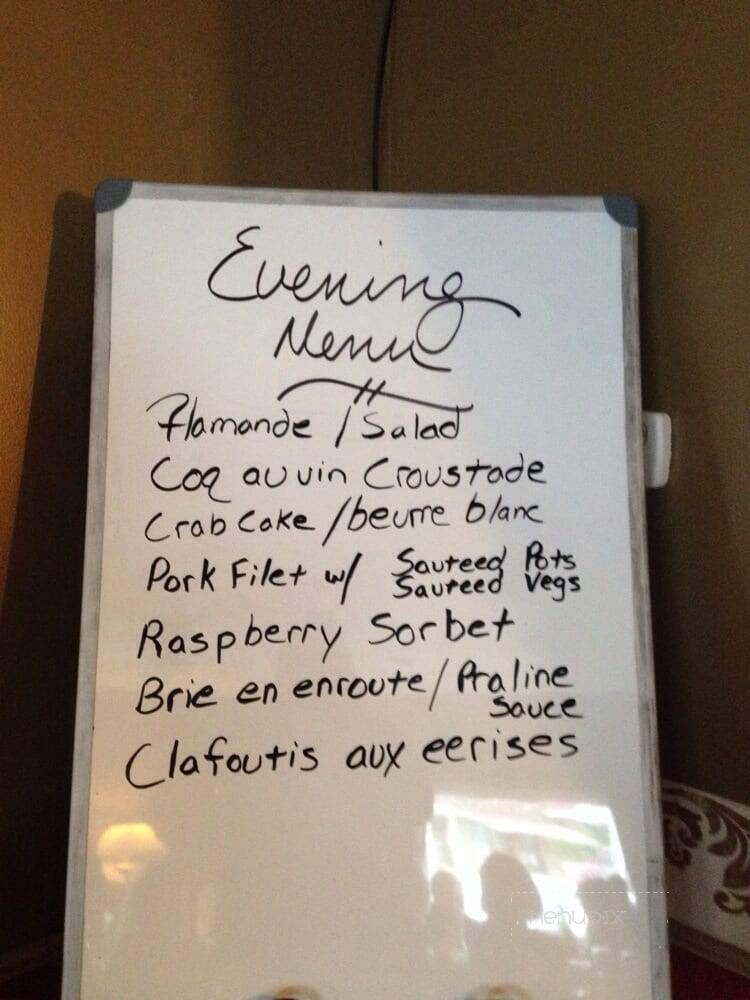 Evening
Menu
Flamande / Salad
Coq au vin Croustade
Crab Cake / beurre blanc
Pork Filet w/ Sauteed Pots
Sauteed Vegs
Raspberry Sorbet
Brie en enroute / Praline
Sauce
Clafoutis aux eerises
menupix